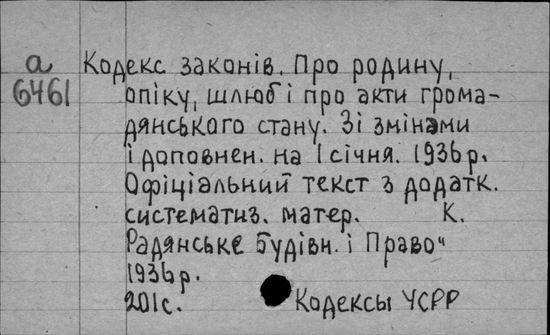 а
6461
Кодекс законів. Про родину,
опіку, шлюб і про акти грома-
дянського стану. Зі змінами
і доповнен. на 1 січня. 1936 р.
Офіціальний текст з додатк.
систематиз. матер. К.
Радянське будівн. і Право"
1936 р.
201 с.
Кодексы УСРР